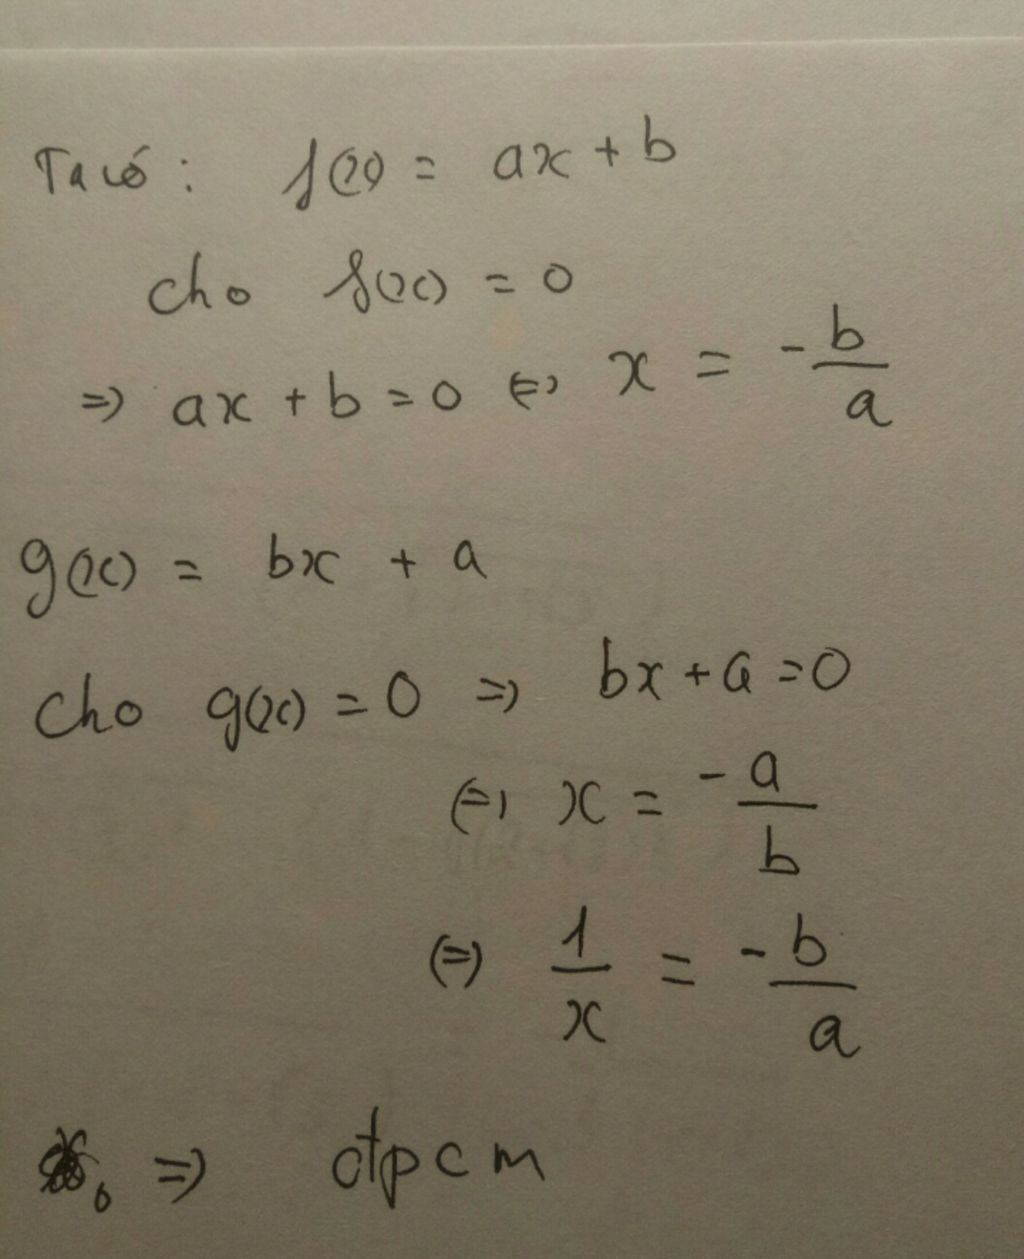 Ta có : f(x) = ax + b
cho f(x) = 0
=> ax + b = 0 <=> x = -b/a
g(x) = bx + a
Cho g(x) = 0 => bx + a = 0
<=> x = -a/b
<=> 1/x = -b/a
=> đpcm